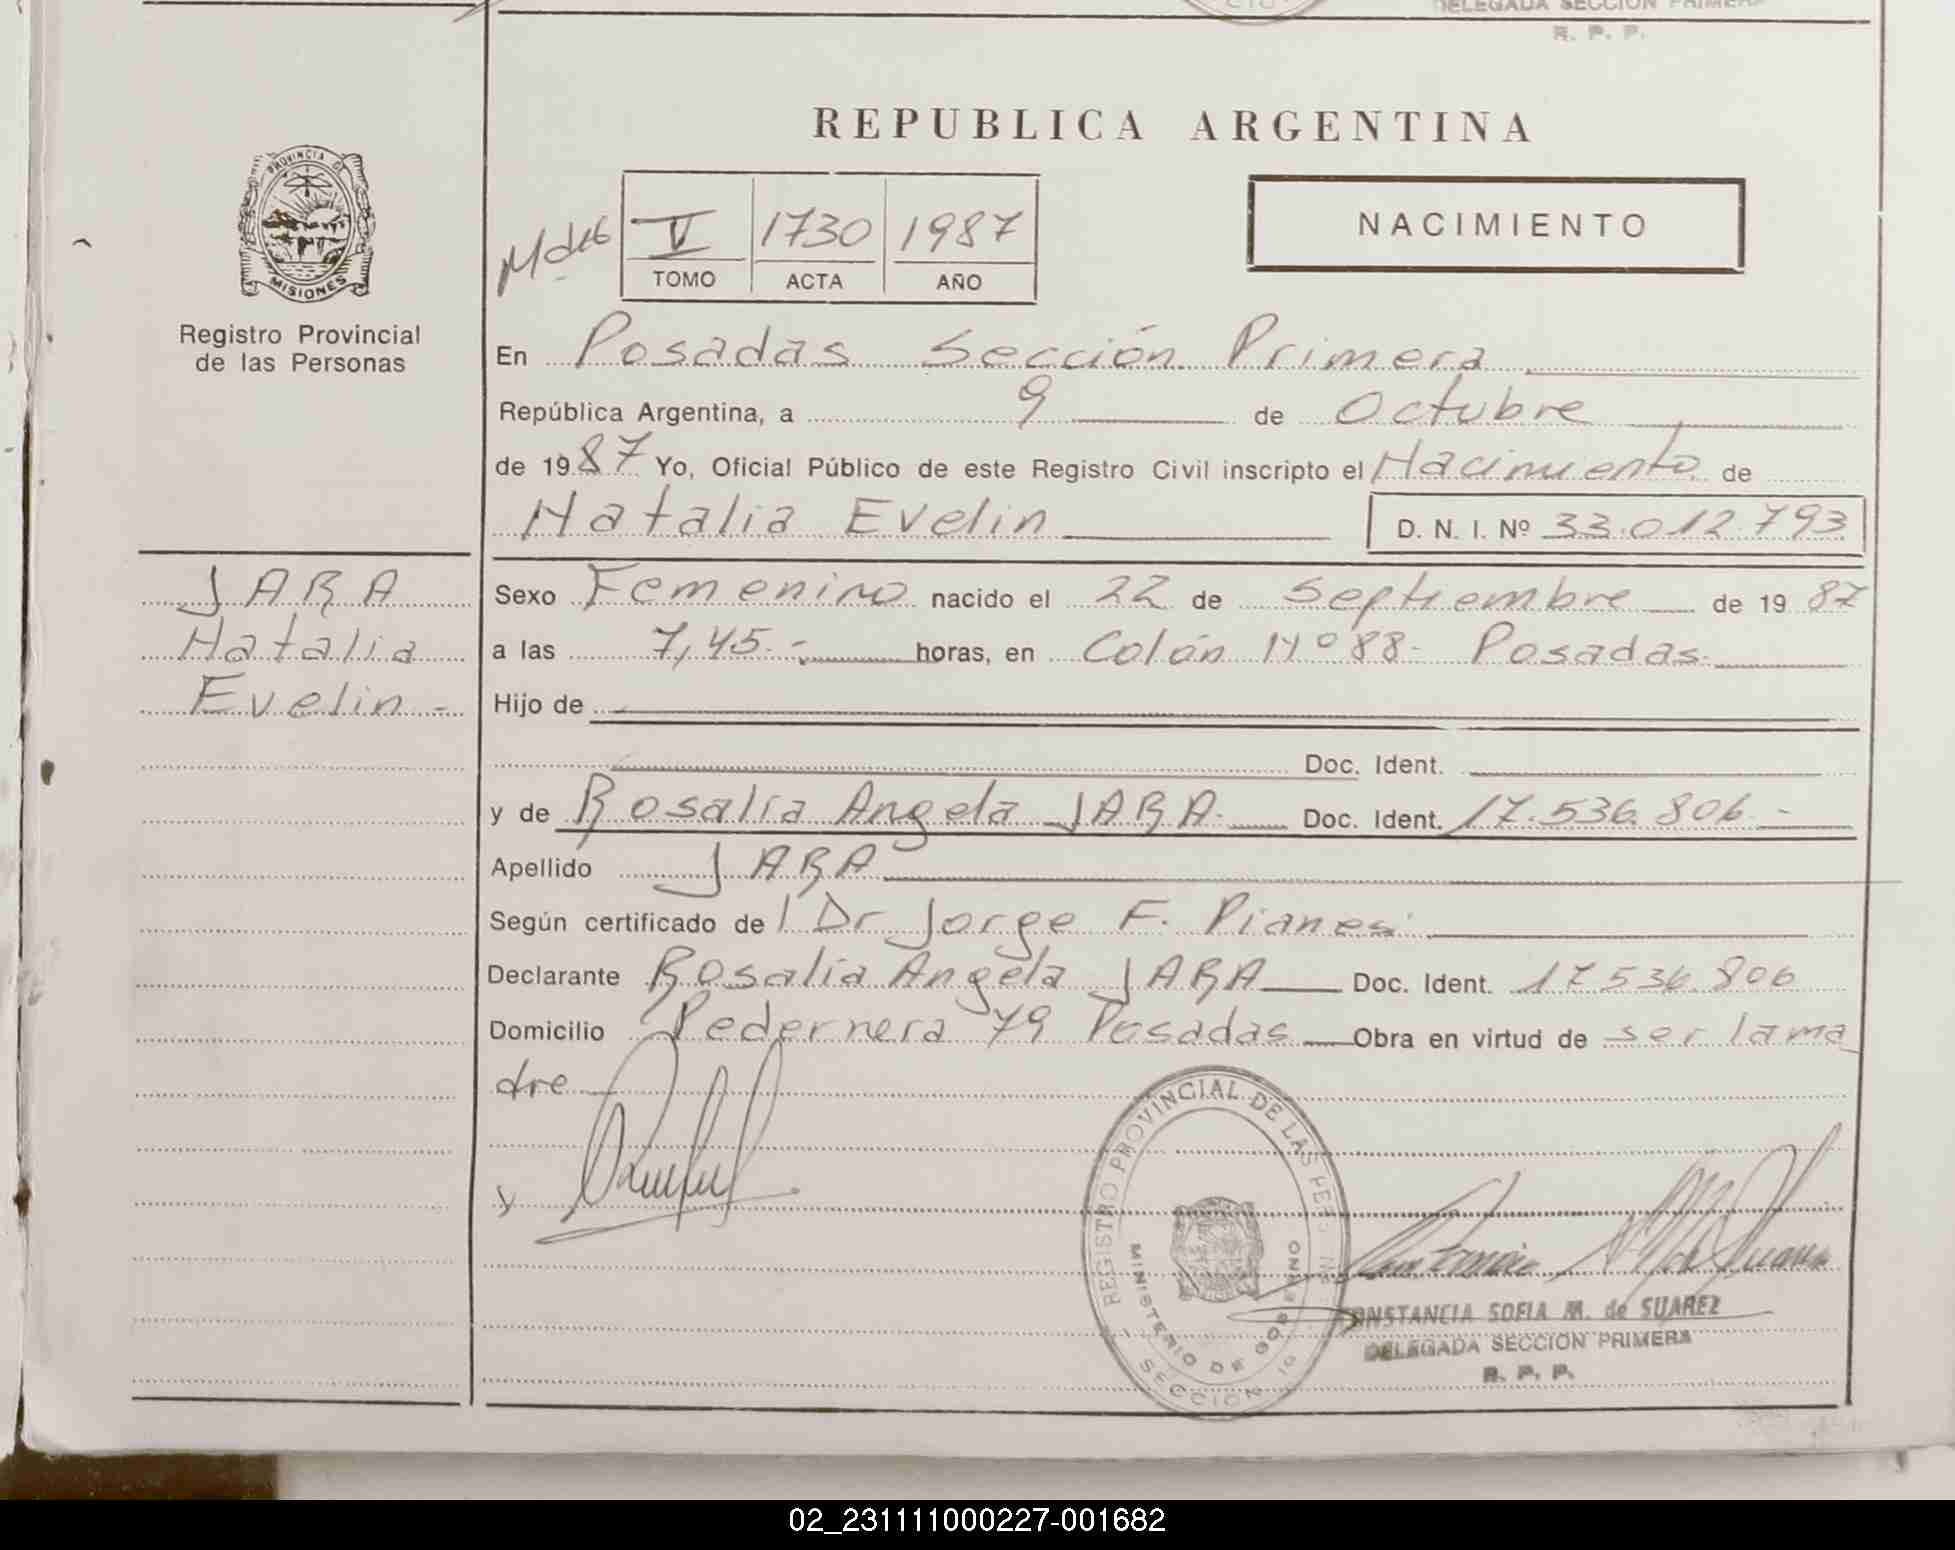 DELEGADA SECCION PRIMERA
R. P. P.
REPUBLICA ARGENTINA
PROVINCIA DE
MISIONES
Registro Provincial
de las Personas
V 1730 1987
TOMO ACTA AÑO
NACIMIENTO
En Posadas Sección Primera
República Argentina, a 9 de Octubre
de 1987 Yo, Oficial Público de este Registro Civil inscripto el Nacimiento de
Natalia Evelin D. N. I. Nº 33.012.793
JARA
Natalia
Evelin.-
Sexo Femenino nacido el 22 de Septiembre de 1987
a las 7,45.- horas, en Colón Nº 88- Posadas-
Hijo de
Doc. Ident.
y de Rosalia Angela JARA- Doc. Ident. 17.536.806.-
Apellido JARA
Según certificado del Dr Jorge F. Pianesi
Declarante Rosalia Angela JARA Doc. Ident. 17.536.806
Domicilio Pedernera 79 Posadas Obra en virtud de ser la ma
dre
y
REGISTRO PROVINCIAL DE LAS PERSONAS
MINISTERIO DE GOBIERNO
SECCION 1a
CONSTANCIA SOFIA M. de SUAREZ
DELEGADA SECCION PRIMERA
R. P. P.
02_231111000227-001682